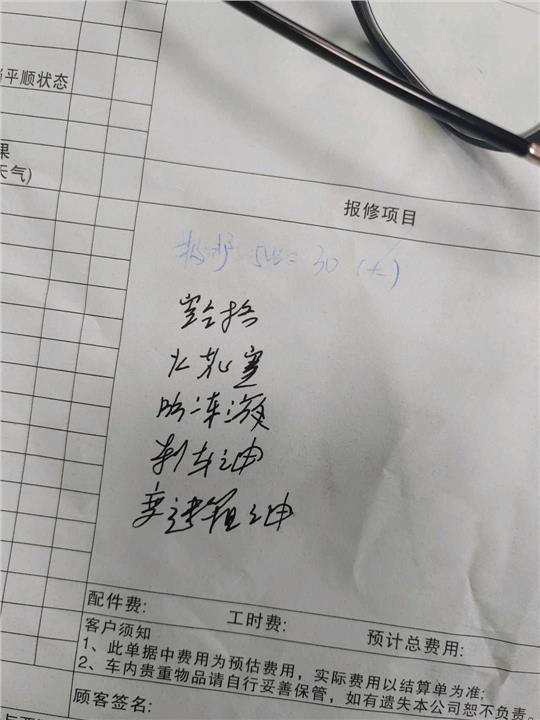 平顺状态
果
天气)
报修项目
30
火花塞
防冻液
刹车油
变速箱油
配件费: 工时费: 预计总费用:
客户须知
1、此单据中费用为预估费用，实际费用以结算单为准;
2、车内贵重物品请自行妥善保管，如有遗失本公司恕不负责。
顾客签名: